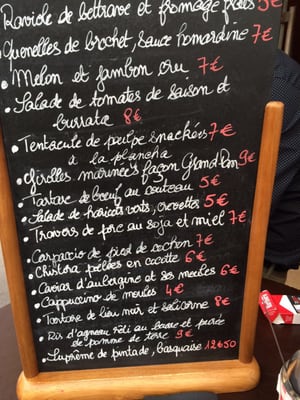 Raviole de bettrave et fromage frais 5€
• Quenelles de brochet, sauce homardine 7€
• Melon et jambon cru 7€
• Salade de tomates de saison et
burrata 8€
• Tentacule de poulpe snackées 7€
à la plancha
• Girolles marinées façon Grand-Pan 9€
• Tartare de bœuf au couteau 5€
• Salade de haricots verts, crevettes 5€
• Travers de porc au soja et miel 7€
• Carpaccio de pied de cochon 7€
• Chistora poêlées en cocotte 6€
• Caviar d'aubergine et ses meches 6€
• Cappuccino de moules 4€
• Tartare de lieu noir et salicorne 8€
• Ris d'agneau rôti au beurre et purée
de pomme de terre 9€
• Suprême de pintade, basquaise 12€50